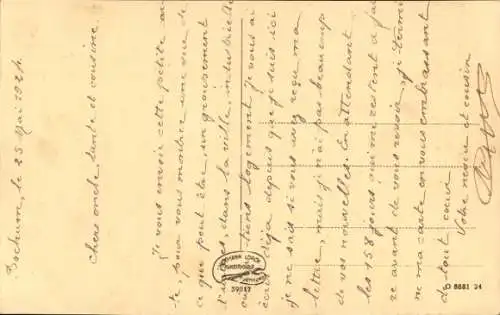 Bochum, le 25 Mai 1924
Chers oncle, tante et cousine.
Je vous envoie cette petite car
te, pour vous montrer une vue de
ce que peut être, un groupement
dans la ville, industrielle
logement. Je vous ai
écrit déjà depuis que je suis ici
je ne sais si vous avez reçu ma
lettre, mais je n'ai pas beaucoup
de vos nouvelles. En attendant
les 158 jours, qui me restent à fai
re avant de vous revoir, je termi
ne ma carte en vous embrassant
de tout coeur
Votre neveu et cousin
59817
O 8881 24